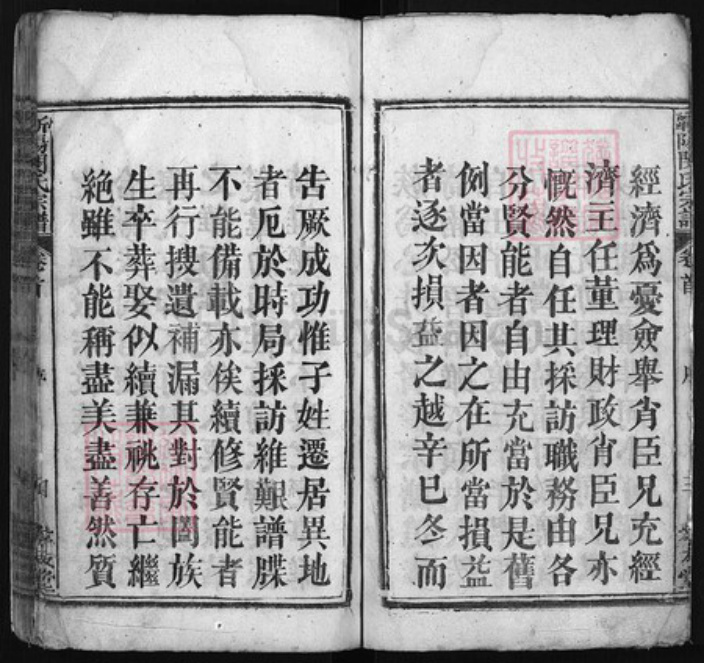 經濟爲憂僉舉肖臣兄充經
濟主任董理財政肖臣兄亦
慨然自任其採訪職務由各
分賢能者自由充當於是舊
例當因者因之在所當損益
者逐次損益之越辛巳冬而
告厥成功惟子姓遷居異地
者厄於時局採訪維艱譜牒
不能備載亦俟續修賢能者
再行搜遺補漏其對於闔族
生卒葬娶似續兼祧存亡繼
絶雖不能稱盡美盡善然質
氏宗譜
卷首